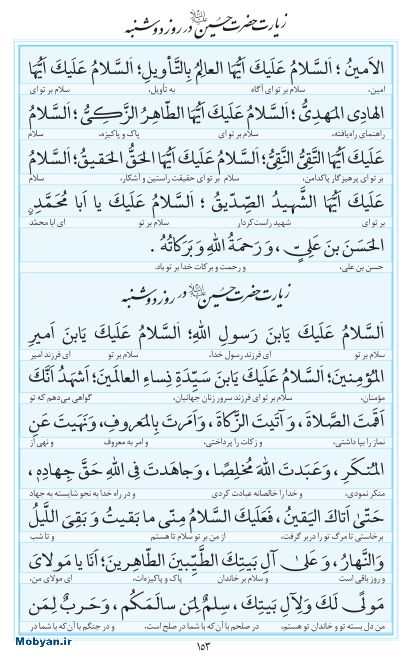 زیارت حضرت حسین علیه‌السلام در روز دوشنبه
الاَمینُ ؛ اَلسَّلامُ عَلَیكَ اَیُّهَا العالِمُ بِالتَّأویلِ؛ اَلسَّلامُ عَلَیكَ اَیُّهَا
امین، سلام بر تو ای آگاه به تأویل، سلام بر تو ای
الهادِی المَهدِیُّ؛ اَلسَّلامُ عَلَیكَ اَیُّهَا الطّاهِرُ الزَّكِیُّ؛ اَلسَّلامُ
راهنمای راه‌یافته، سلام بر تو ای پاک و پاکیزه، سلام
عَلَیكَ اَیُّهَا التَّقِیُّ النَّقِیُّ؛ اَلسَّلامُ عَلَیكَ اَیُّهَا الحَقُّ الحَقیقُ؛ اَلسَّلامُ
بر تو ای پرهیزگار پاکدامن، سلام بر تو ای حقیقت راستین و آشکار، سلام
عَلَیكَ اَیُّهَا الشَّهیدُ الصِّدّیقُ ؛ اَلسَّلامُ عَلَیكَ یا اَبا مُحَمَّدٍ
بر تو ای شهید راست‌کردار سلام بر تو ای ابا محمّد
الحَسَنَ بنَ عَلِیٍّ ، وَ رَحمَةُ اللهِ وَ بَرَكاتُهُ .
حسن بن علی، و رحمت و برکات خدا بر تو باد.
زیارت حضرت حسین علیه‌السلام در روز دوشنبه
اَلسَّلامُ عَلَیكَ یَابنَ رَسولِ اللهِ؛ اَلسَّلامُ عَلَیكَ یَابنَ اَمیرِ
سلام بر تو ای فرزند رسول خدا، سلام بر تو ای فرزند امیر
المُؤمِنینَ؛ اَلسَّلامُ عَلَیكَ یَابنَ سَیِّدَةِ نِساءِ العالَمینَ؛ اَشهَدُ اَنَّكَ
مؤمنان، سلام بر تو ای فرزند سرور زنان جهانیان، گواهی می‌دهم که تو
اَقَمتَ الصَّلاةَ ، وَ آتَیتَ الزَّكاةَ، وَ اَمَرتَ بِالمَعروفِ، وَ نَهَیتَ عَنِ
نماز را بپا داشتی، و زکات را پرداختی، و امر به معروف و نهی از
المُنكَرِ، وَ عَبَدتَ اللهَ مُخلِصًا، وَ جاهَدتَ فِی اللهِ حَقَّ جِهادِهِ،
منکر نمودی، و خدا را خالصانه عبادت کردی و در راه خدا به نحو شایسته به جهاد
حَتّیٰ اَتاكَ الیَقینُ، فَعَلَیكَ السَّلامُ مِنّی ما بَقیتُ وَ بَقِیَ اللَّیلُ
برخاستی تا مرگ تو را دربر گرفت، از من بر تو سلام تا هستم و تا شب
وَ النَّهارُ، وَ عَلیٰ آلِ بَیتِكَ الطَّیِّبینَ الطّاهِرینَ؛ اَنا یا مَولایَ
و روز باقی است و سلام بر خاندان پاک و پاکیزه‌ات، ای مولای من،
مَولًی لَكَ وَ لِآلِ بَیتِكَ ، سِلمٌ لِمَن سالَمَكُم ، وَ حَربٌ لِمَن
من دل بسته تو و خاندان تو هستم، در صلحم با آن‌که با شما در صلح است، و در جنگم با آن‌که با شما در
۱۵۳
Mobyan.ir